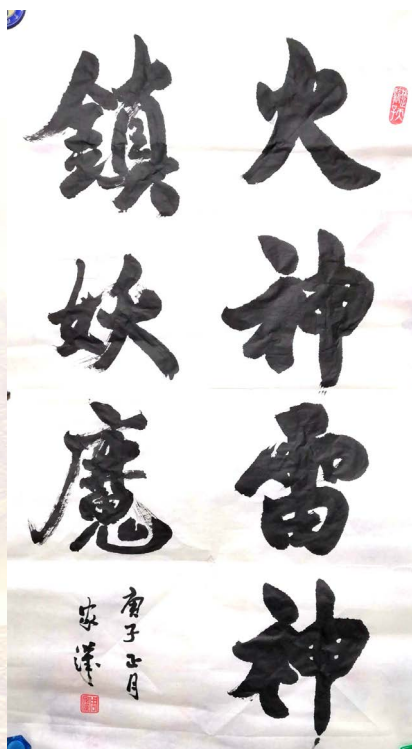 火神雷神
鎮妖魔
庚子正月
家漢